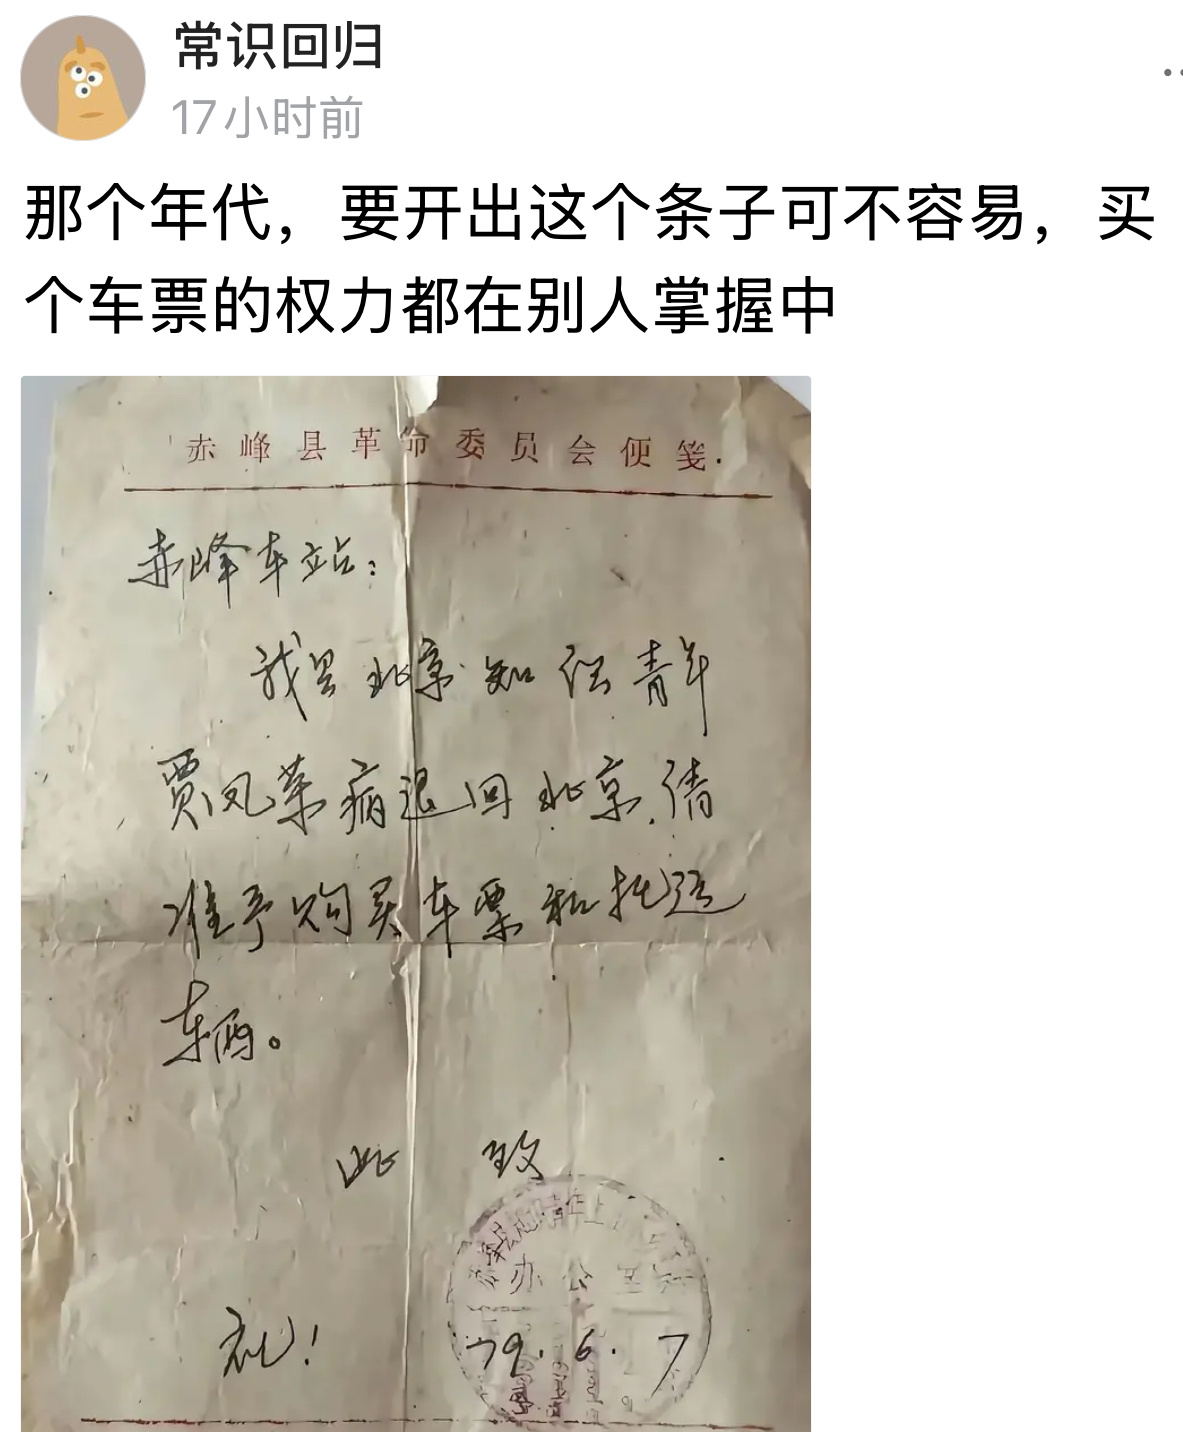 常识回归
17小时前
那个年代，要开出这个条子可不容易，买
个车票的权力都在别人掌握中
赤峰县革命委员会便笺
赤峰车站：
我县北京知识青年
贾凤荣病退回北京，请
准予购买车票和托运
车辆。
此 致
办公室
礼！
79.6.7